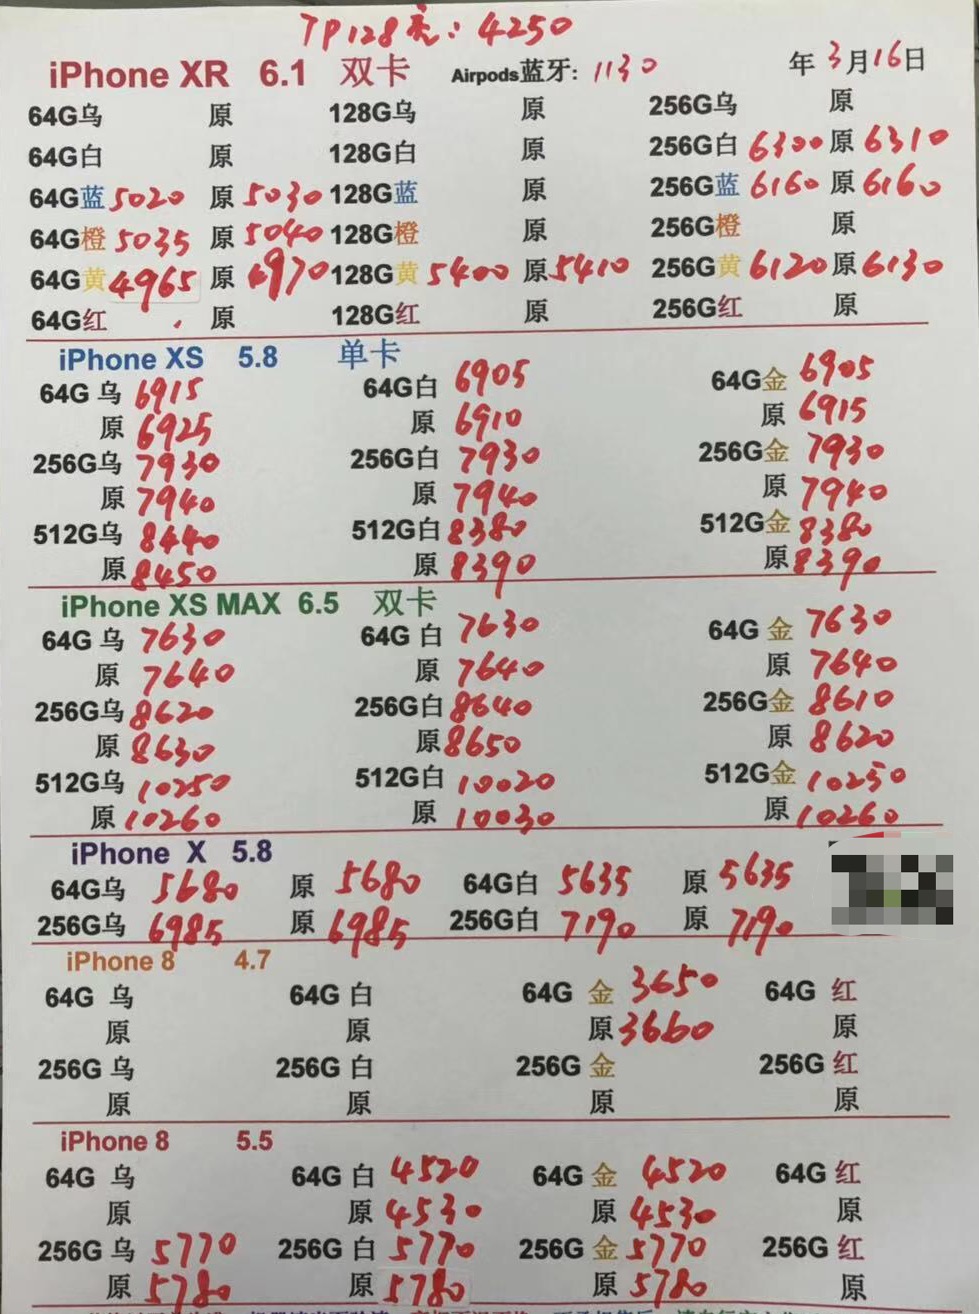 7P128亮：4250
iPhone XR 6.1 双卡 Airpods蓝牙: 1130 年3月16日
64G乌 原 128G乌 原 256G乌 原
64G白 原 128G白 原 256G白 6300 原 6310
64G蓝 5020 原 5030 128G蓝 原 256G蓝 6160 原 6160
64G橙 5035 原 5040 128G橙 原 256G橙 原
64G黄 4965 原 4970 128G黄 5400 原 5410 256G黄 6120 原 6130
64G红 原 128G红 原 256G红 原
iPhone XS 5.8 单卡
64G 乌 6915 64G白 6905 64G金 6905
原 6925 原 6910 原 6915
256G乌 7930 256G白 7930 256G金 7930
原 7940 原 7940 原 7940
512G乌 8440 512G白 8380 512G金 8380
原 8450 原 8390 原 8390
iPhone XS MAX 6.5 双卡
64G 乌 7630 64G 白 7630 64G 金 7630
原 7640 原 7640 原 7640
256G乌 8620 256G白 8640 256G金 8610
原 8630 原 8650 原 8620
512G乌 10250 512G白 10020 512G金 10250
原 10260 原 10030 原 10260
iPhone X 5.8
64G乌 5680 原 5680 64G白 5635 原 5635
256G乌 6985 原 6985 256G白 7190 原 7190
iPhone 8 4.7
64G 乌 64G 白 64G 金 3650 64G 红
原 原 原 3660 原
256G 乌 256G 白 256G 金 256G 红
原 原 原 原
iPhone 8 5.5
64G 乌 64G 白 4520 64G 金 4520 64G 红
原 原 4530 原 4530 原
256G 乌 5770 256G 白 5770 256G 金 5770 256G 红
原 5780 原 5780 原 5780 原